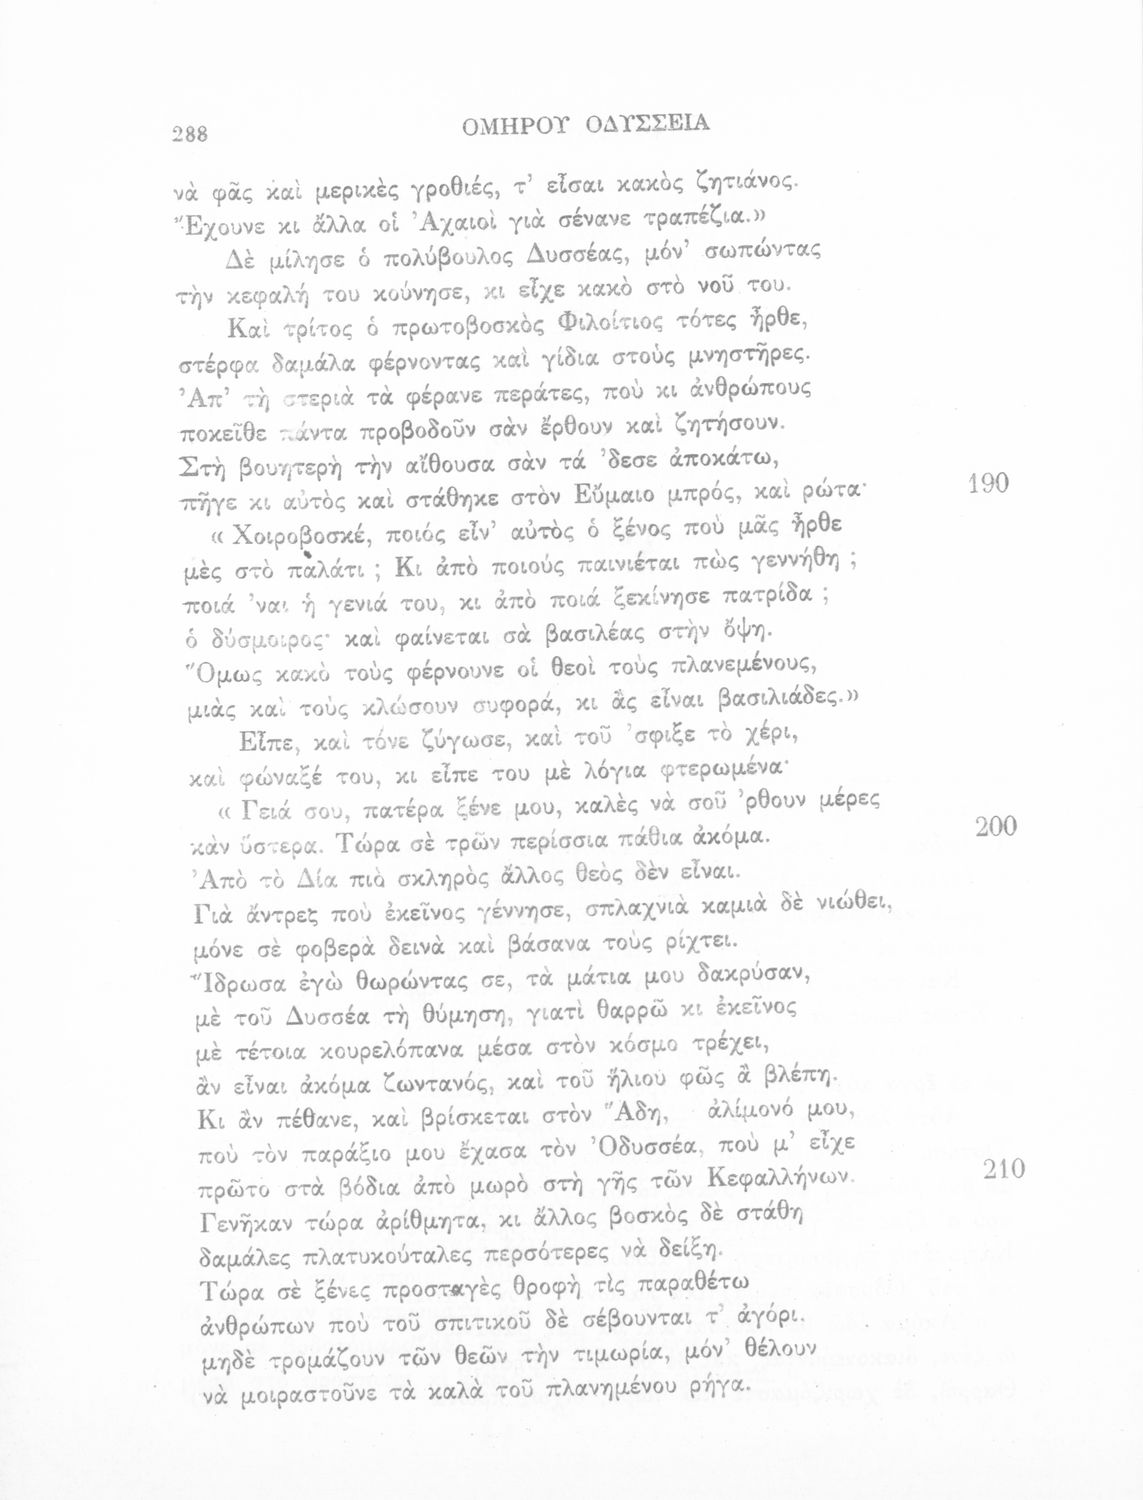 288
ΟΜΗΡΟΥ ΟΔΥΣΣΕΙΑ
νὰ φᾶς καὶ μερικὲς γροθιές, τ' εἶσαι κακὸς ζητιάνος.
Ἔχουνε κι ἄλλα οἱ Ἀχαιοὶ γιὰ σένανε τραπέζια.»
Δὲ μίλησε ὁ πολύβουλος Δυσσέας, μόν' σωπώντας
τὴν κεφαλή του κούνησε, κι εἶχε κακὸ στὸ νοῦ του.
Καὶ τρίτος ὁ πρωτοβοσκὸς Φιλοίτιος τότες ἦρθε,
στέρφα δαμάλα φέρνοντας καὶ γίδια στοὺς μνηστῆρες.
Ἀπ' τὴ στεριὰ τὰ φέρανε περάτες, ποὺ κι ἀνθρώπους
ποκεῖθε πάντα προβοδοῦν σὰν ἔρθουν καὶ ζητήσουν.
Στὴ βουητερὴ τὴν αἴθουσα σὰν τά 'δεσε ἀποκάτω,
πῆγε κι αὐτὸς καὶ στάθηκε στὸν Εὔμαιο μπρός, καὶ ρώτα·
190
« Χοιροβοσκέ, ποιός εἶν' αὐτὸς ὁ ξένος ποὺ μᾶς ἦρθε
μὲς στὸ παλάτι ; Κι ἀπὸ ποιούς παινιέται πὼς γεννήθη ;
ποιά 'ναι ἡ γενιά του, κι ἀπὸ ποιά ξεκίνησε πατρίδα ;
ὁ δύσμοιρος· καὶ φαίνεται σὰ βασιλέας στὴν ὄψη.
Ὅμως κακὸ τοὺς φέρνουνε οἱ θεοὶ τοὺς πλανεμένους,
μιὰς καὶ τοὺς κλώσουν συφορά, κι ἂς εἶναι βασιλιάδες.»
Εἶπε, καὶ τόνε ζύγωσε, καὶ τοῦ 'σφιξε τὸ χέρι,
καὶ φώναξέ του, κι εἶπε του μὲ λόγια φτερωμένα·
« Γειά σου, πατέρα ξένε μου, καλὲς νὰ σοῦ 'ρθουν μέρες
κὰν ὕστερα. Τώρα σὲ τρῶν περίσσια πάθια ἀκόμα.
200
Ἀπὸ τὸ Δία πιὸ σκληρὸς ἄλλος θεὸς δὲν εἶναι.
Γιὰ ἄντρες ποὺ ἐκεῖνος γέννησε, σπλαχνιὰ καμιὰ δὲ νιώθει,
μόνε σὲ φοβερὰ δεινὰ καὶ βάσανα τοὺς ρίχτει.
Ἵδρωσα ἐγὼ θωρώντας σε, τὰ μάτια μου δακρύσαν,
μὲ τοῦ Δυσσέα τὴ θύμηση, γιατὶ θαρρῶ κι ἐκεῖνος
μὲ τέτοια κουρελόπανα μέσα στὸν κόσμο τρέχει,
ἂν εἶναι ἀκόμα ζωντανός, καὶ τοῦ ἥλιου φῶς ἂ βλέπη.
Κι ἂν πέθανε, καὶ βρίσκεται στὸν Ἅδη, ἀλίμονό μου,
ποὺ τὸν παράξιο μου ἔχασα τὸν Ὀδυσσέα, ποὺ μ' εἶχε
πρῶτο στὰ βόδια ἀπὸ μωρὸ στὴ γῆς τῶν Κεφαλλήνων.
210
Γενῆκαν τώρα ἀρίθμητα, κι ἄλλος βοσκὸς δὲ στάθη
δαμάλες πλατυκούταλες περσότερες νὰ δείξη.
Τώρα σὲ ξένες προσταγὲς θροφὴ τὶς παραθέτω
ἀνθρώπων ποὺ τοῦ σπιτικοῦ δὲ σέβουνται τ' ἀγόρι.
μηδὲ τρομάζουν τῶν θεῶν τὴν τιμωρία, μόν' θέλουν
νὰ μοιραστοῦνε τὰ καλὰ τοῦ πλανημένου ρήγα.